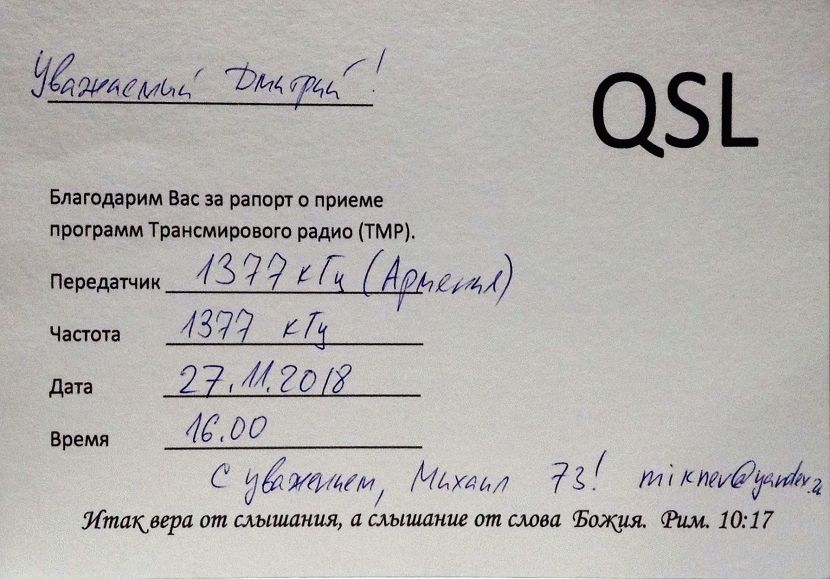 Уважаемый Дмитрий!
QSL
Благодарим Вас за рапорт о приеме
программ Трансмирового радио (ТМР).
Передатчик 1377 кГц (Армения)
Частота 1377 кГц
Дата 27.11.2018
Время 16.00
С уважением, Михаил 73!
Итак вера от слышания, а слышание от слова Божия. Рим. 10:17